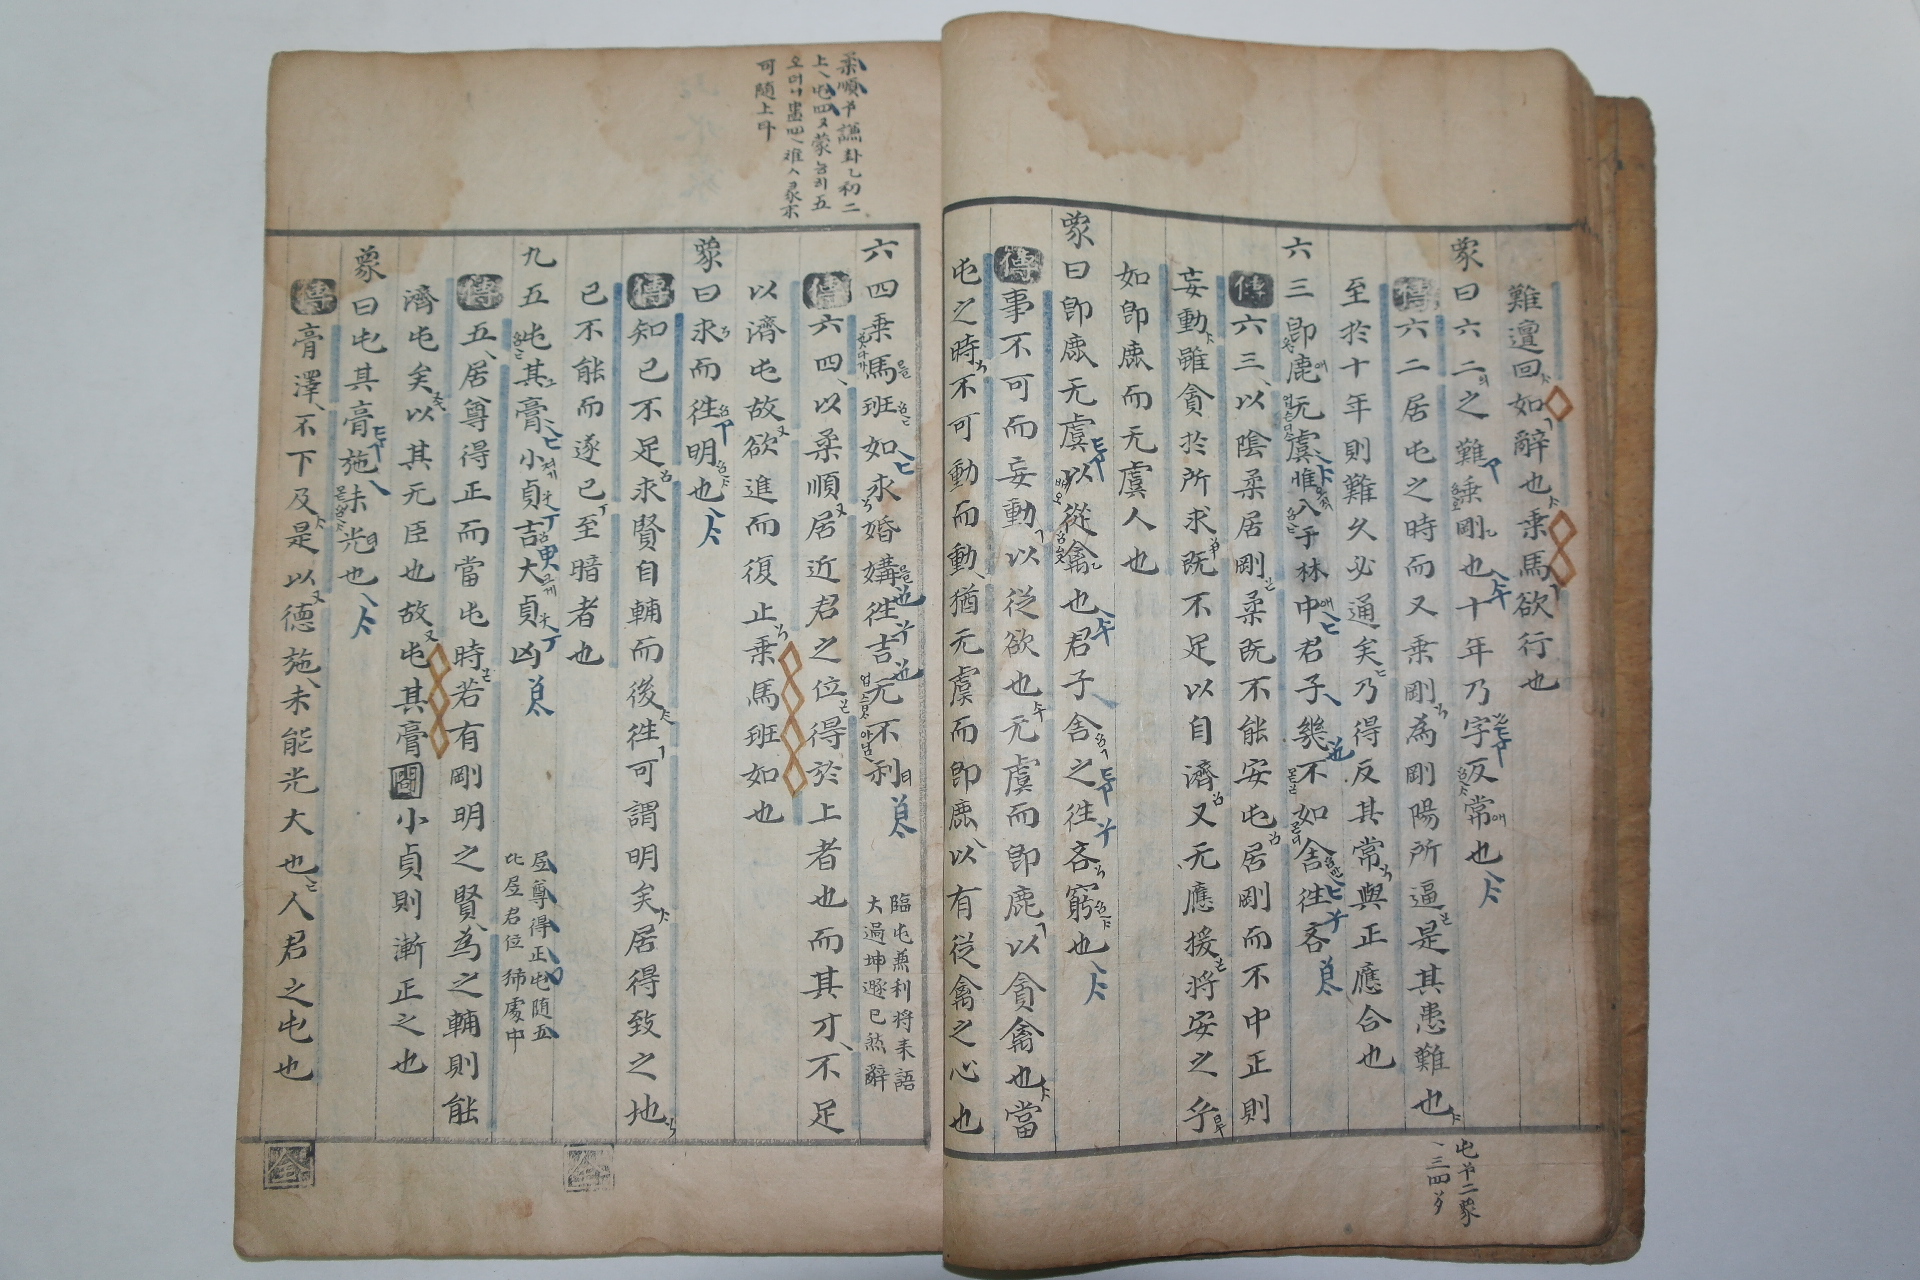 難邅回如辭也乘馬欲行也
象曰六二之難乘剛也十年乃字反常也
傳六二居屯之時而又乘剛為剛陽所逼是其患難也
至於十年則難久必通矣乃得反其常與正應合也
六三即鹿无虞惟入于林中君子幾不如舍往吝
傳六三以陰柔居剛柔既不能安屯居剛而不中正則
妄動雖貪於所求既不足以自濟又无應援將安之乎
如即鹿而无虞人也
象曰即鹿无虞以從禽也君子舍之往吝窮也
傳事不可而妄動以從欲也无虞而即鹿以貪禽也當
屯之時不可動而動猶无虞而即鹿以有從禽之心也
六四乘馬班如求婚媾往吉无不利
傳六四以柔順居近君之位得於上者也而其才不足
以濟屯故欲進而復止乘馬班如也
象曰求而往明也
傳知己不足求賢自輔而後往可謂明矣居得致之地
己不能而遂已至暗者也
九五屯其膏小貞吉大貞凶
傳五居尊得正而當屯時若有剛明之賢為之輔則能
濟屯矣以其无臣也故屯其膏 小貞則漸正之也
象曰屯其膏施未光也
傳膏澤不下及是以德施未能光大也人君之屯也